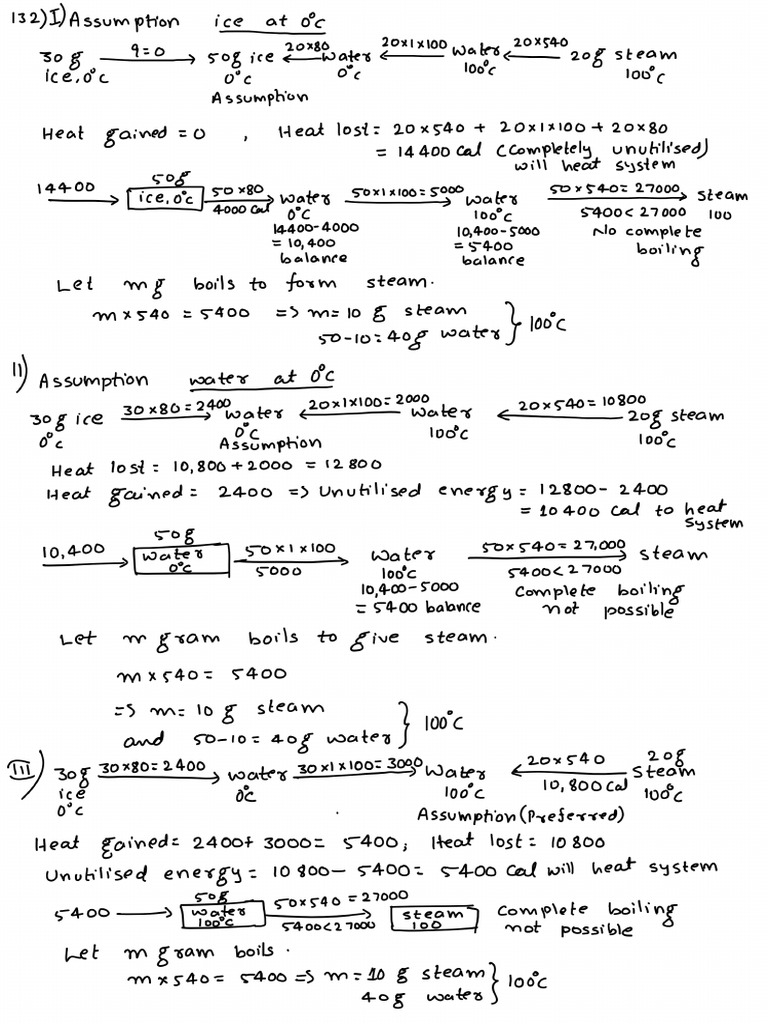 132) I) Assumption ice at 0°C
30 g ice, 0°C —q=0→ 50g ice 0°C ←20×80— water 0°C ←20×1×100— water 100°C ←20×540— 20g steam 100°C
Assumption
Heat gained = 0 , Heat lost = 20×540 + 20×1×100 + 20×80
= 14400 Cal (Completely unutilised)
will heat system
14400 → 50g ice, 0°C —50×80 4000 Cal→ water 0°C —50×1×100=5000→ water 100°C —50×540=27000→ steam 100
14400-4000 = 10,400 balance
10,400-5000 = 5400 balance
5400<27000 No complete boiling
Let mg boils to form steam.
m×540 = 5400 => m=10 g steam
50-10=40g water } 100°C
II) Assumption water at 0°C
30g ice 0°C —30×80=2400→ water 0°C ←20×1×100=2000— water 100°C ←20×540=10800— 20g steam 100°C
Assumption
Heat lost = 10,800+2000 = 12800
Heat gained = 2400 => Unutilised energy = 12800-2400
= 10400 Cal to heat system
10,400 → 50g water 0°C —50×1×100 5000→ water 100°C —50×540=27,000 5400<27000→ steam
10,400-5000 = 5400 balance
Complete boiling not possible
Let m gram boils to give steam.
m×540 = 5400
=> m=10 g steam
and 50-10=40g water } 100°C
III) 30g ice 0°C —30×80=2400→ water 0°C —30×1×100=3000→ Water 100°C ←20×540 10,800 Cal— 20g Steam 100°C
Assumption (Preferred)
Heat gained = 2400+3000 = 5400; Heat lost = 10800
Unutilised energy = 10800-5400 = 5400 Cal will heat system
5400 → 50g water 100°C —50×540=27000 5400<27000→ steam 100 Complete boiling not possible
Let m gram boils.
m×540 = 5400 => m=10 g steam
40g water } 100°C